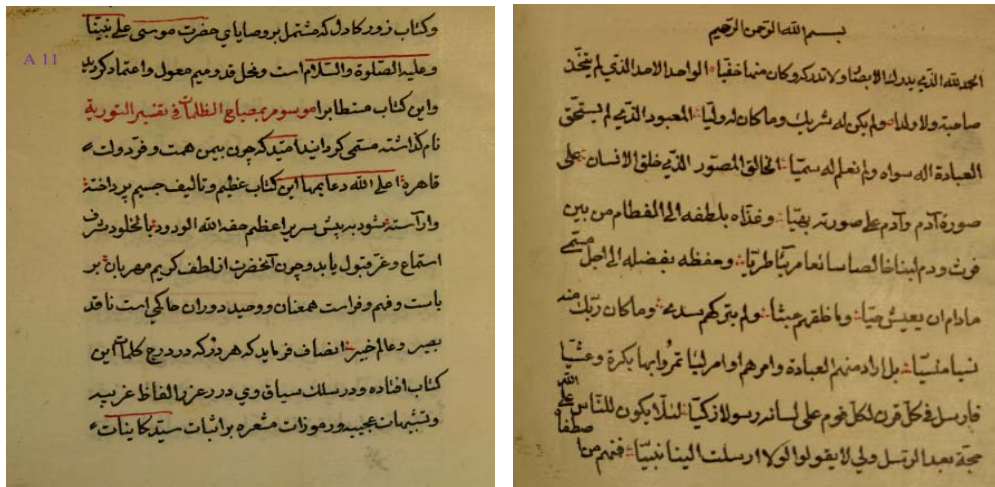 بسم الله الرحمن الرحيم
الحمد لله الذي يدرك الابصار ولا تدركه وكان منها خفيا الواحد الاحد الذي لم يتخذ
صاحبة ولا ولدا ولم يكن له شريك وما كان له وليا المعبود الذي لم يستحق
العبادة اله سواه ولم نعلم له سميا الخالق المصور الذي خلق الانسان على
صورة آدم وآدم على صورته بهيا وغذاه بلطفه الى الفطام من بين
فرث ودم لبنا خالصا سائغا مريا طريا وحفظه بفضله الى اجل مسمى
مادام ان يعيش حيا وما خلقهم عبثا ولم يتركهم سدى وما كان ربك
نسيا منسيا بل اراد منهم العبادة وامرهم اوامر ليا تمروا بها بكرة وعشيا
فارسل في كل قرن لكل قوم على لسانه رسولا زكيا لئلا يكون للناس على الله
حجة بعد الرسل ولي لا يقولوا لولا ارسلت الينا نبيا فمنهم من
A 11
وكتاب زور كادل كه مشتمل بروصاياي حضرت موسى على نبينا
وعليه الصلوة والسلام است ومحل قدوم معول واعتماد كرديد
واين كتاب مستطابرا موسوم بمصباح الظلمات في تفسير التورية
نام كذاشته مسمى كردانيد اميد كه چون بيمن همت وفر دولت
قاهرة اعلى الله دعايمها اين كتاب عظيم وتاليف جسيم پرداخته
وآراسته شود به پيش سرير اعظم حفه الله الودود بالخلود شرف
استماع وعز قبول يابد وچون آنحضرت از لطف كريم مهربان بر
ياست وفهم وفراست همعنان ووحيد دوران حاكمي است ناقد
بصير وعالم خبير انصاف فرمايد كه هر در كه در درج كلمات اين
كتاب افتاده ودر سلك سياق وي درر عزر الفاظ غريبه
وتشبيهات عجيبه ورموزات مشعره بر اثبات سيد كاينات